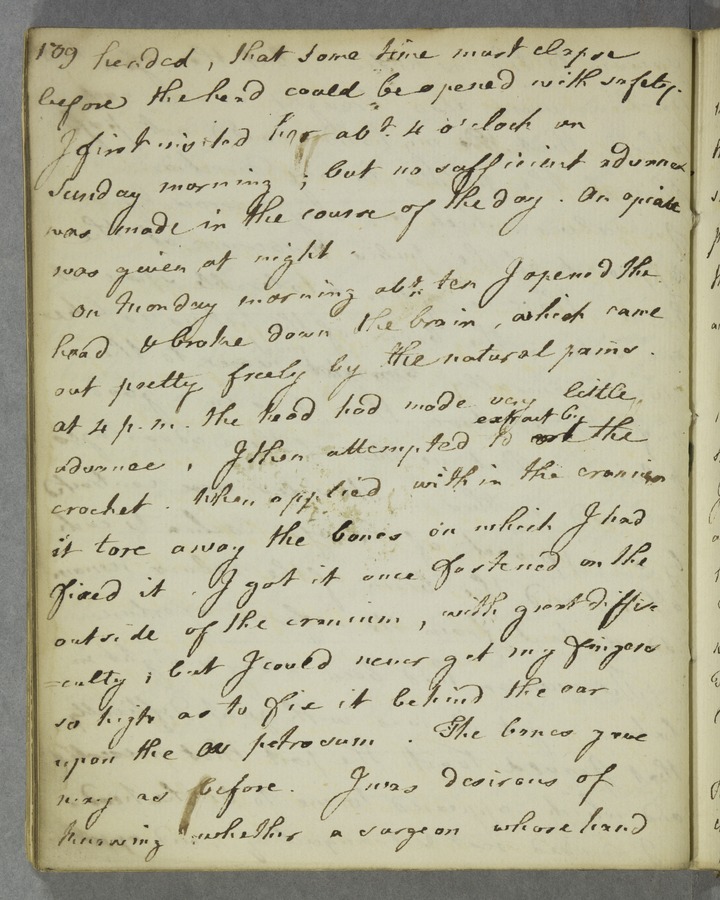 109 hended, that some time must elapse
before the head could be opened with safety.
I first visited her abt. 4 o'clock on
Sunday morning; but no sufficient advance
was made in the course of the day. An opiate
was given at night.
On Monday morning abt. ten I opened the
head & broke down the brain, which came
out pretty freely by the natural pains.
at 4 p.m. the head had made very little
advance, I then attempted to extract by the
crochet. When applied within the cranium
it tore away the bones on which I had
fixed it. I got it once fastened on the
outside of the cranium, with great diffi=
=culty; but I could never get my fingers
so high as to fix it behind the ear
upon the os petrosum. The bones gave
way as before. I was desirous of
knowing whether a surgeon whose hand